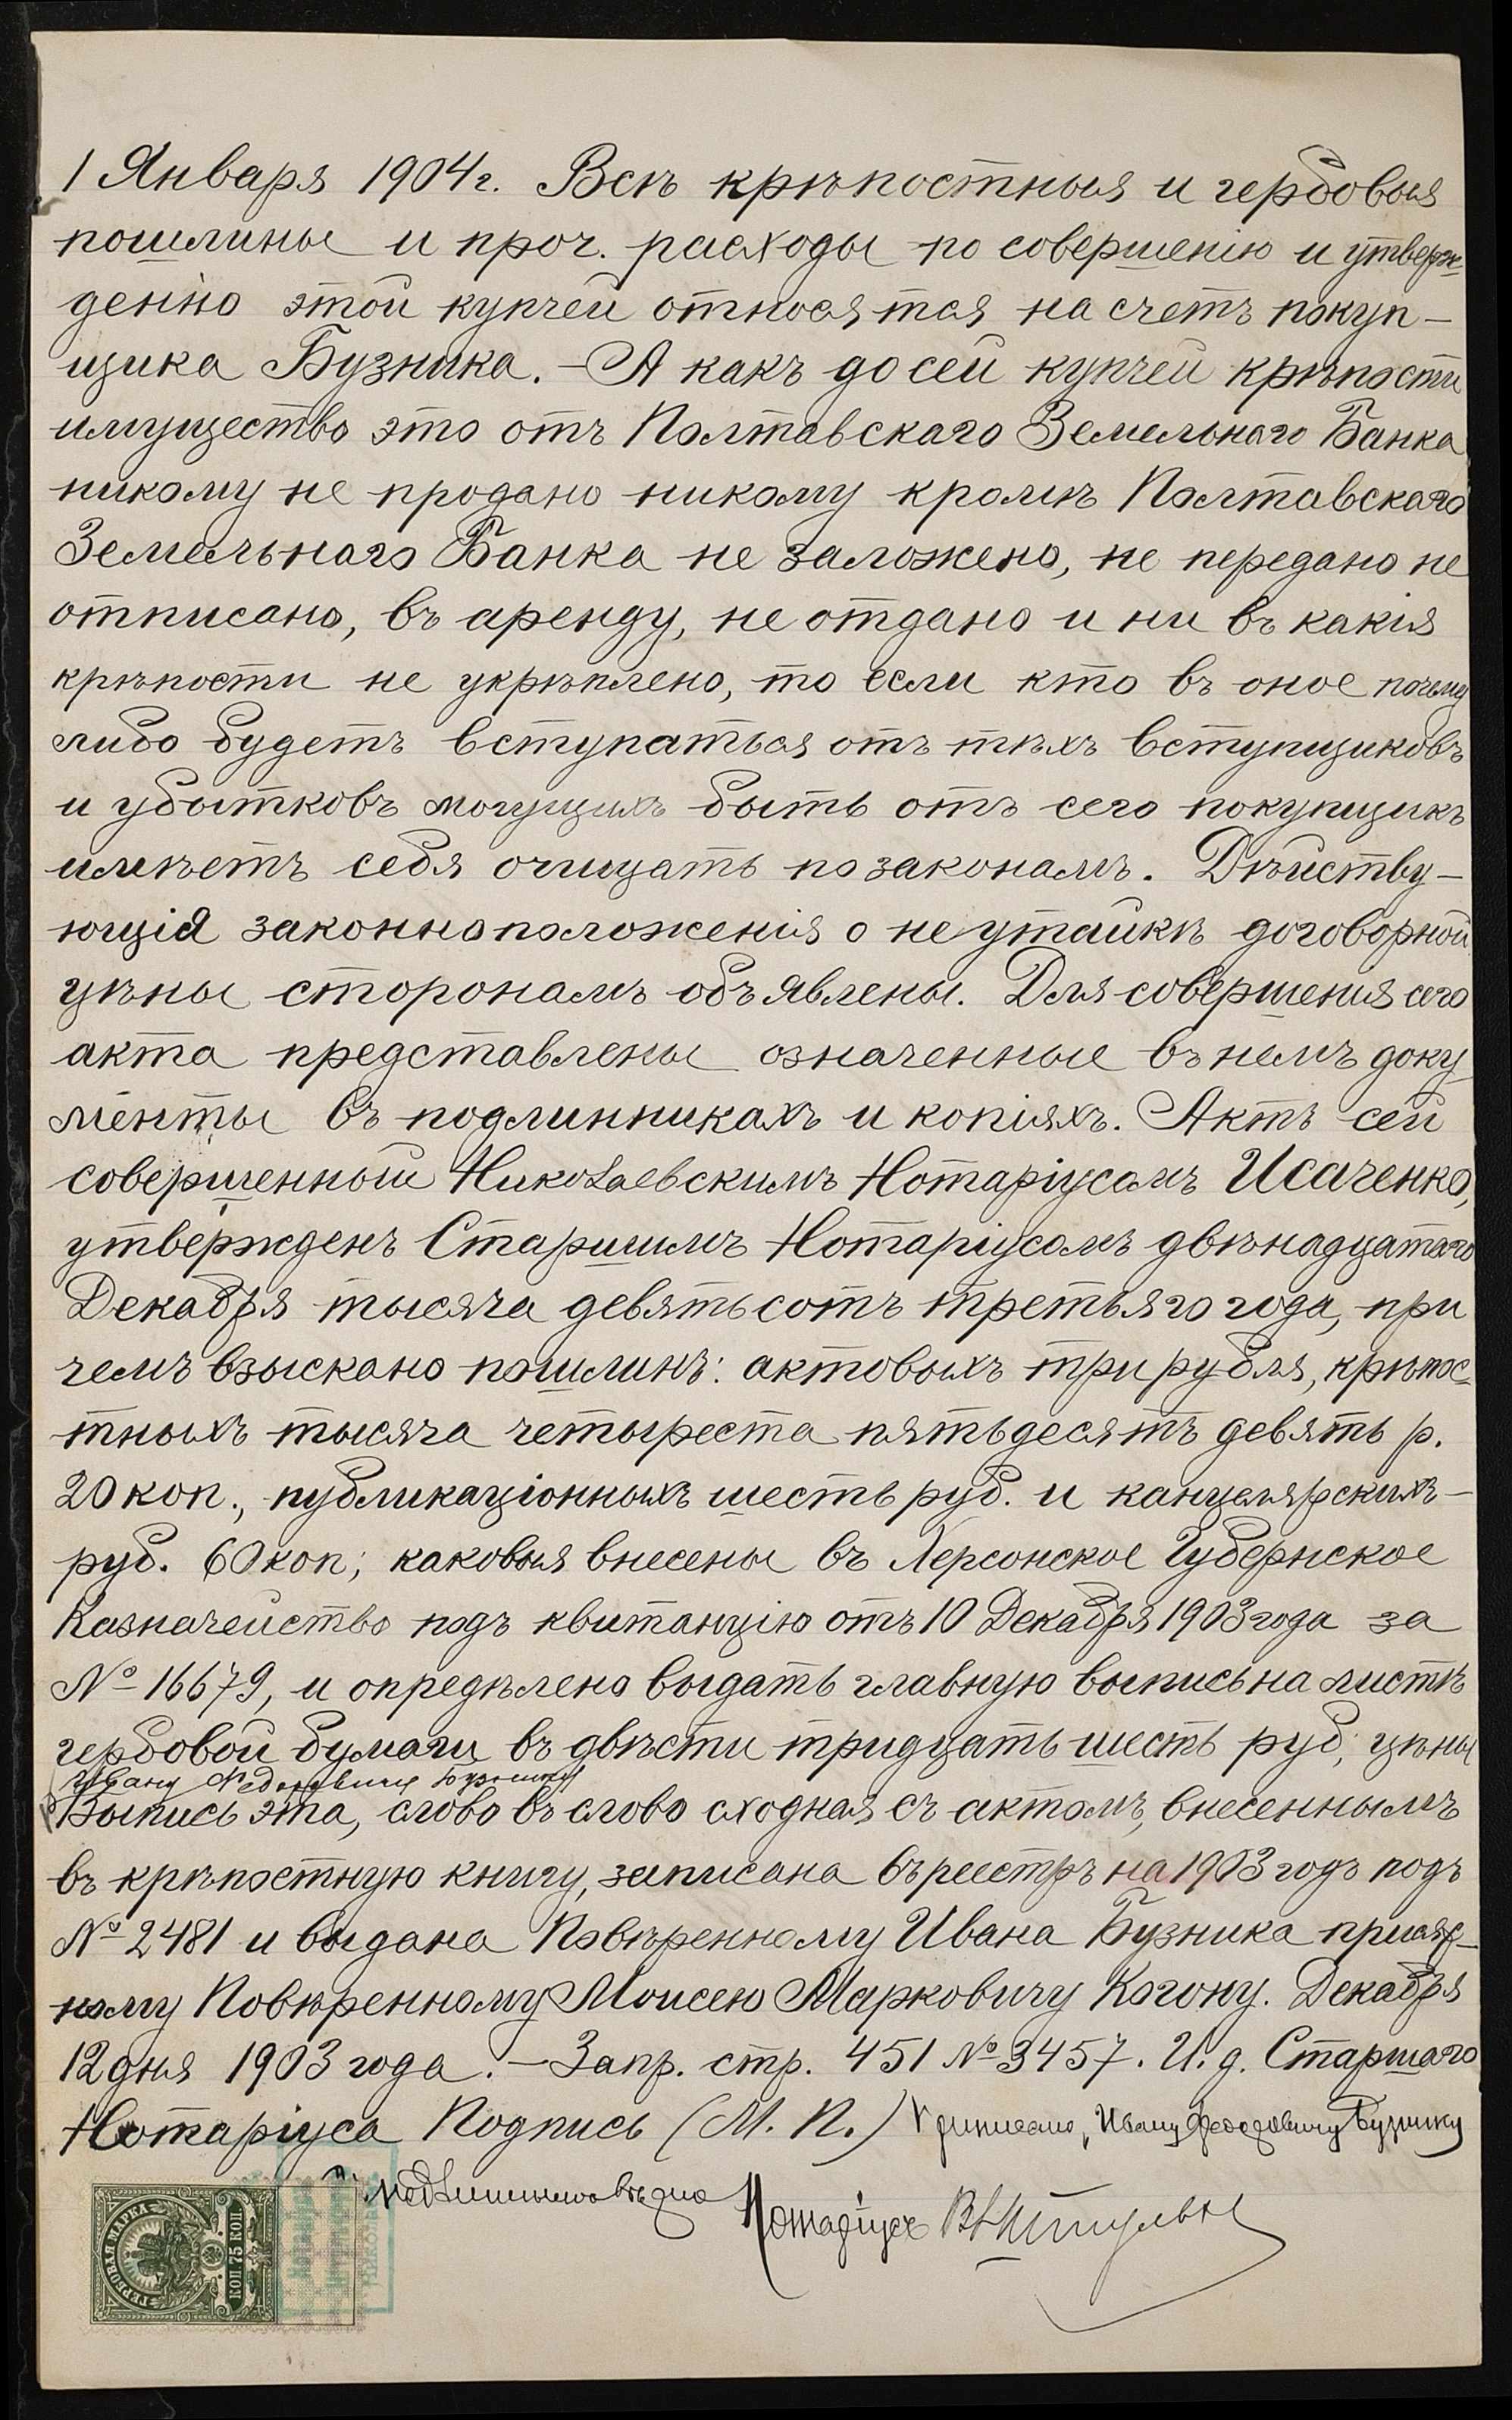 1 Января 1904г. Всѣ крѣпостныя и гербовыя
пошлины и проч. расходы по совершенію и утверж-
денію этой купчей относятся на счетъ покуп-
щика Бузника. – А какъ до сей купчей крѣпости
имущество это отъ Полтавскаго Земельнаго Банка
никому не продано никому кромѣ Полтавскаго
Земельнаго Банка не заложено, не передано не
отписано, въ аренду, не отдано и ни въ какія
крѣпости не укрѣплено, то если кто въ оное почему
либо будетъ вступаться отъ тѣхъ вступщиковъ
и убытковъ могущихъ быть отъ сего покупщикъ
имѣетъ себя очищать по законамъ. Дѣйству-
ющія законноположенія о не утайкѣ договорной
цѣны сторонамъ объявлены. Для совершенія сего
акта представлены означенные въ немъ доку-
менты въ подлинникахъ и копіяхъ. Актъ сей
совершенный Николаевскимъ Нотаріусомъ Исаченко,
утвержденъ Старшимъ Нотаріусомъ двѣнадцатаго
Декабря тысяча девятьсотъ третьяго года, при
чемъ взыскано пошлинъ: актовыхъ три рубля, крѣпос-
тныхъ тысяча четыреста пятьдесятъ девять р.
20 коп., публикаціонныхъ шесть руб. и канцелярскихъ –
руб. 60 коп; каковыя внесены въ Херсонское Губернское
Казначейство подъ квитанцію отъ 10 Декабря 1903 года за
№ 16679, и опредѣлено выдать главную выпись на листѣ
гербовой бумаги въ двѣсти тридцать шесть руб; цѣны
Ивану Федоровичу Бузнику
Выпись эта, слово въ слово сходная съ актомъ, внесеннымъ
въ крѣпостную книгу, записана въ реестръ на 1903 годъ подъ
№ 2481 и выдана Повѣренному Ивана Бузника присяж-
ному Повѣренному Моисею Марковичу Когону. Декабря
12 дня 1903 года. – Запр. стр. 451 № 3457. И. д. Старшаго
Нотаріуса Подпись (М. П.) приписано, Ивану Федоровичу Бузнику
вѣрно Нотаріусъ
ГЕРБОВАЯ МАРКА
75 КОП.